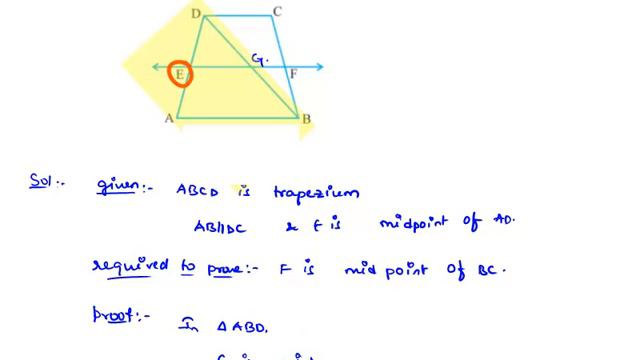 D C
G.
E F
A B
Sol:- given:- ABCD is trapezium
AB||DC & E is midpoint of AD.
required to prove:- F is mid point of BC.
proof:- In △ABD.